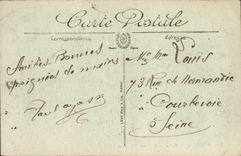 Carte Postale
Correspondance
Adresse
Amitiés Bonnes
Poignées de mains
Mr Mme Louis
73 Rue de Normandie
à Courbevoie
Seine